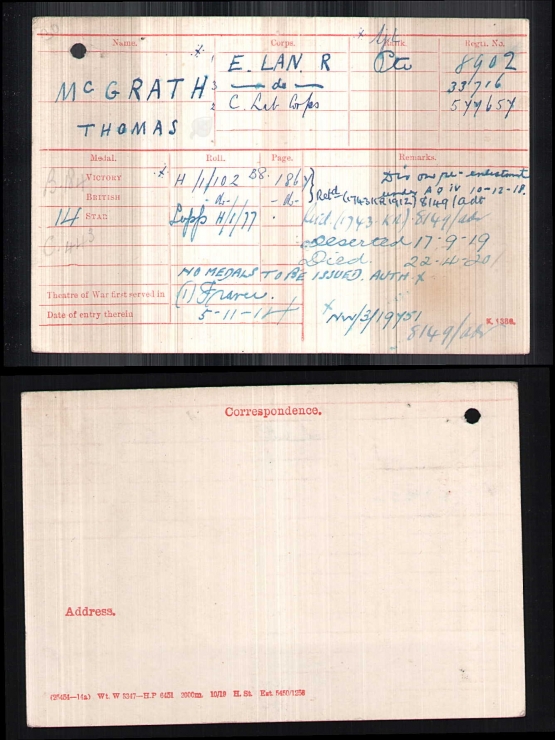 Name. Corps. Rank. Regtl. No.
McGRATH
THOMAS
x 1 E. LAN. R x Pte 8902
3 — do — 33716
2 C. Lab Corps 577657
Medal. Roll. Page. Remarks.
VICTORY x H/1/102 B8. 1867
BRITISH - do - - do -
14 STAR H/1/77
Dis on re-enlistment
under AO IV 10-12-18.
Retd (1743 KR 1912) 8149/adt
(1743 KR) 8149/adt
Deserted 17-9-19
Died. 22-4-20
NO MEDALS TO BE ISSUED. AUTH x
Theatre of War first served in (1) France.
Date of entry therein 5-11-14
x NW/3/19751
8149/adt
K. 1380.
Correspondence.
Address.
Wt. W 5347—H.P 2000m. 10/19 H. St.